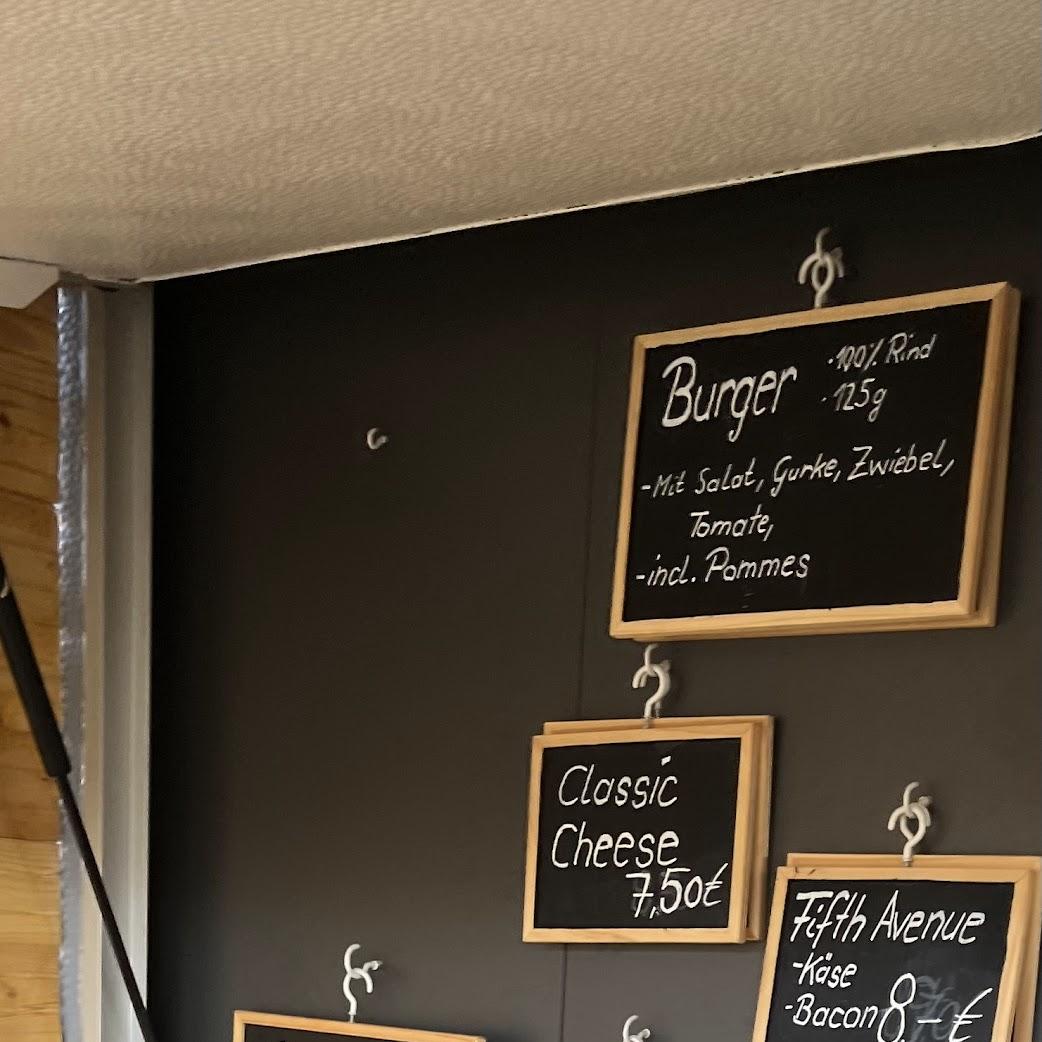 Burger
·100% Rind
·125g
-Mit Salat, Gurke, Zwiebel,
Tomate,
-incl. Pommes
Classic
Cheese
7,50€
Fifth Avenue
-Käse
-Bacon 8,-€